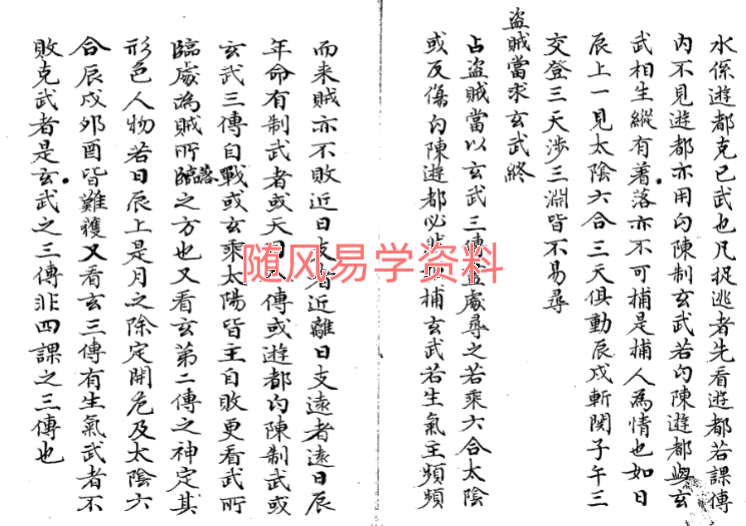 水係遊都克巳武也凡捉逃者先看遊都若課傳
內不見遊都亦用勾陳制玄武若勾陳遊都與玄
武相生縱有着落亦不可捕是捕人為情也如日
辰上一見太陰六合三天俱動辰戌斬関子午三
交登三天涉三淵皆不易尋
盜賊當求玄武終
占盜賊當以玄武三傳 處尋之若乘六合太陰
或反傷勾陳遊都必 捕玄武若生氣主頻頻
而来賊亦不敗近日支者近離日支遠者遠日辰
年命有制武者或天 傳或遊都勾陳制武或
玄武三傳自戰或玄乘太陽皆主自敗更看武所
臨處為賊所臨落之方也又看玄第二傳之神定其
形色人物若日辰上是月之除定開危及太陰六
合辰戌夘酉皆難獲又看玄三傳有生氣武者不
敗克武者是玄武之三傳非四課之三傳也
随风易学资料